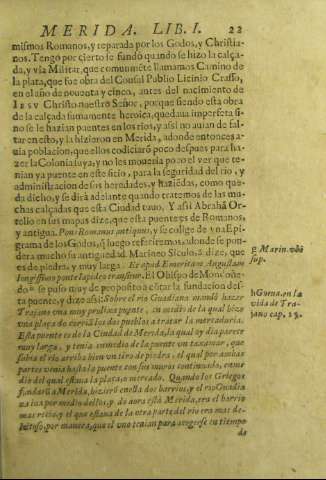 MERIDA. LIB. I. 22
mismos Romanos, y reparada por los Godos, y Christia-
nos. Tengo por cierto se fundò quando se hizo la calça-
da, y via Militar, que comunmẽte llamamos Camino de
la plata, que fue obra del Cousul Publio Licinio Crasso,
en el año de nouenta y cinco, antes del nacimiento de
IESV Christo nuestro Señor, porque siendo esta obra
de la calçada sumamente heroica, quedaua imperfeta si
no se le hazian puentes en los rios, y assi no auian de fal-
tar en esto, y la hizieron en Merida, adonde entonces a-
uia poblacion, que ellos codiciarõ poco despues para ha-
zer la Colonia suya, y no les moueria poco el ver que te-
nian ya puente en este sitio, para la seguridad del rio, y
administracion de sus heredades, y haziẽdas, como que-
da dicho, y se dirà adelante quando tratemos de las mu-
chas calçadas que esta Ciudad tuuo. Y assi Abrahã Or-
telio en sus mapas dize, que esta puente es de Romanos,
y antigua. Pons Romanus antiquus, y se colige de vna Epi-
grama de los Godos, q̃ luego referiremos, adonde se pon-
dera mucho su antiguedad. Marineo Siculo g dize, que
es de piedra, y muy larga. Et apud Emeritam Augustam
longissimo ponte lapideo transitur. El Obispo de Mon'oñe-
do h se puso muy de proposito à cõtar la fundacion des-
ta puente, y dize assi: Sobre el rio Guadiana mandò hazer
Trajano vna muy prolixa puente, en medio de la qual hizo
vna plaça do corriã los dos pueblos a tratar la mercaduria.
Esta puente es de la Ciudad de Merida, la qual oy dia parece
muy larga, y tenia enmedio de la puente vn taxamar, que
subia el rio arriba bien vn tiro de piedra, el qual por ambas
partes venia hasta la puente con sus muros continuado, enme
dio del qual estaua la plaça, o mercado. Quando los Griegos
fundarõ a Merida, hizierõ enella dos barrios, y el rio Guadia
na iua por medio dellos, y do aora està Merida, era el barrio
mas rezio, y el que estaua de la otra parte del rio era mas de-
leitoso, por manera, que el vno tenian para acogerse en tiempo
de
g Marin. vbi
sup.
h Gueua. en la
vida de Tra-
jano cap. 13.